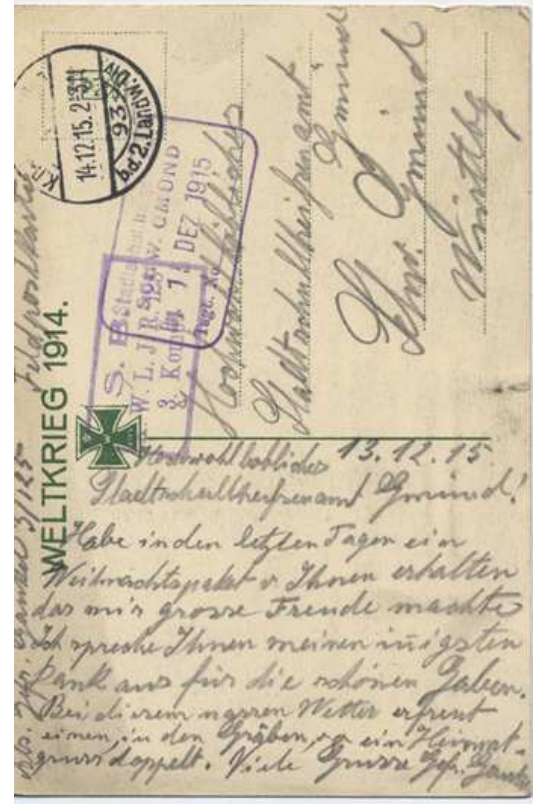 Feldpostkarte
WELTKRIEG 1914.
14.12.15. 2-3N
b.d.2.Landw.Div.
S. B.
W. L. J. R. 125
3. Komp.
SCHW. GMÜND
DEZ 1915
Hochwohllöbliches
Stadtschultheißenamt
Gmünd
Schw. Gmünd
Württbg
13.12.15.
Hochwohllöbliches
Stadtschultheißenamt Gmünd!
Habe in den letzten Tagen ein
Weihnachtspaket v Ihnen erhalten
das mir grosse Freude machte
Ich spreche Ihnen meinen iñigsten
Dank aus für die schönen Gaben.
Bei diesem nassen Wetter erfreut
einen, in den Gräben, so ein Heimat-
gruss doppelt. Viele Grüsse Gefr.